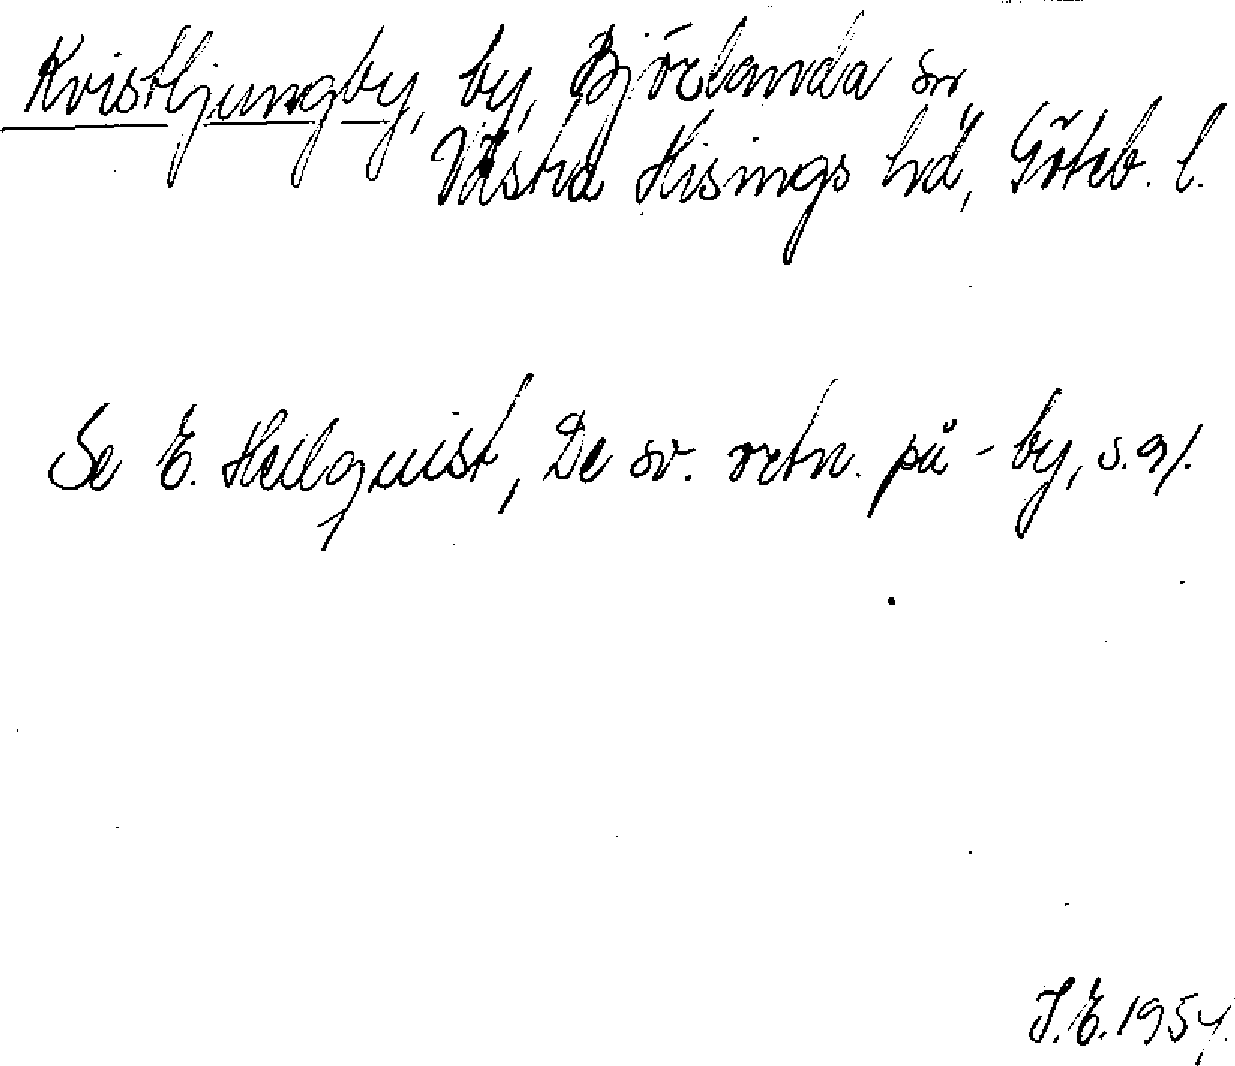 Kvistljungby, by, Björlanda sn,
Västra Hisings hd, Göteb. l.
Se E. Hellquist, De sv. ortn. på -by, s. 91.
I.E. 1954.